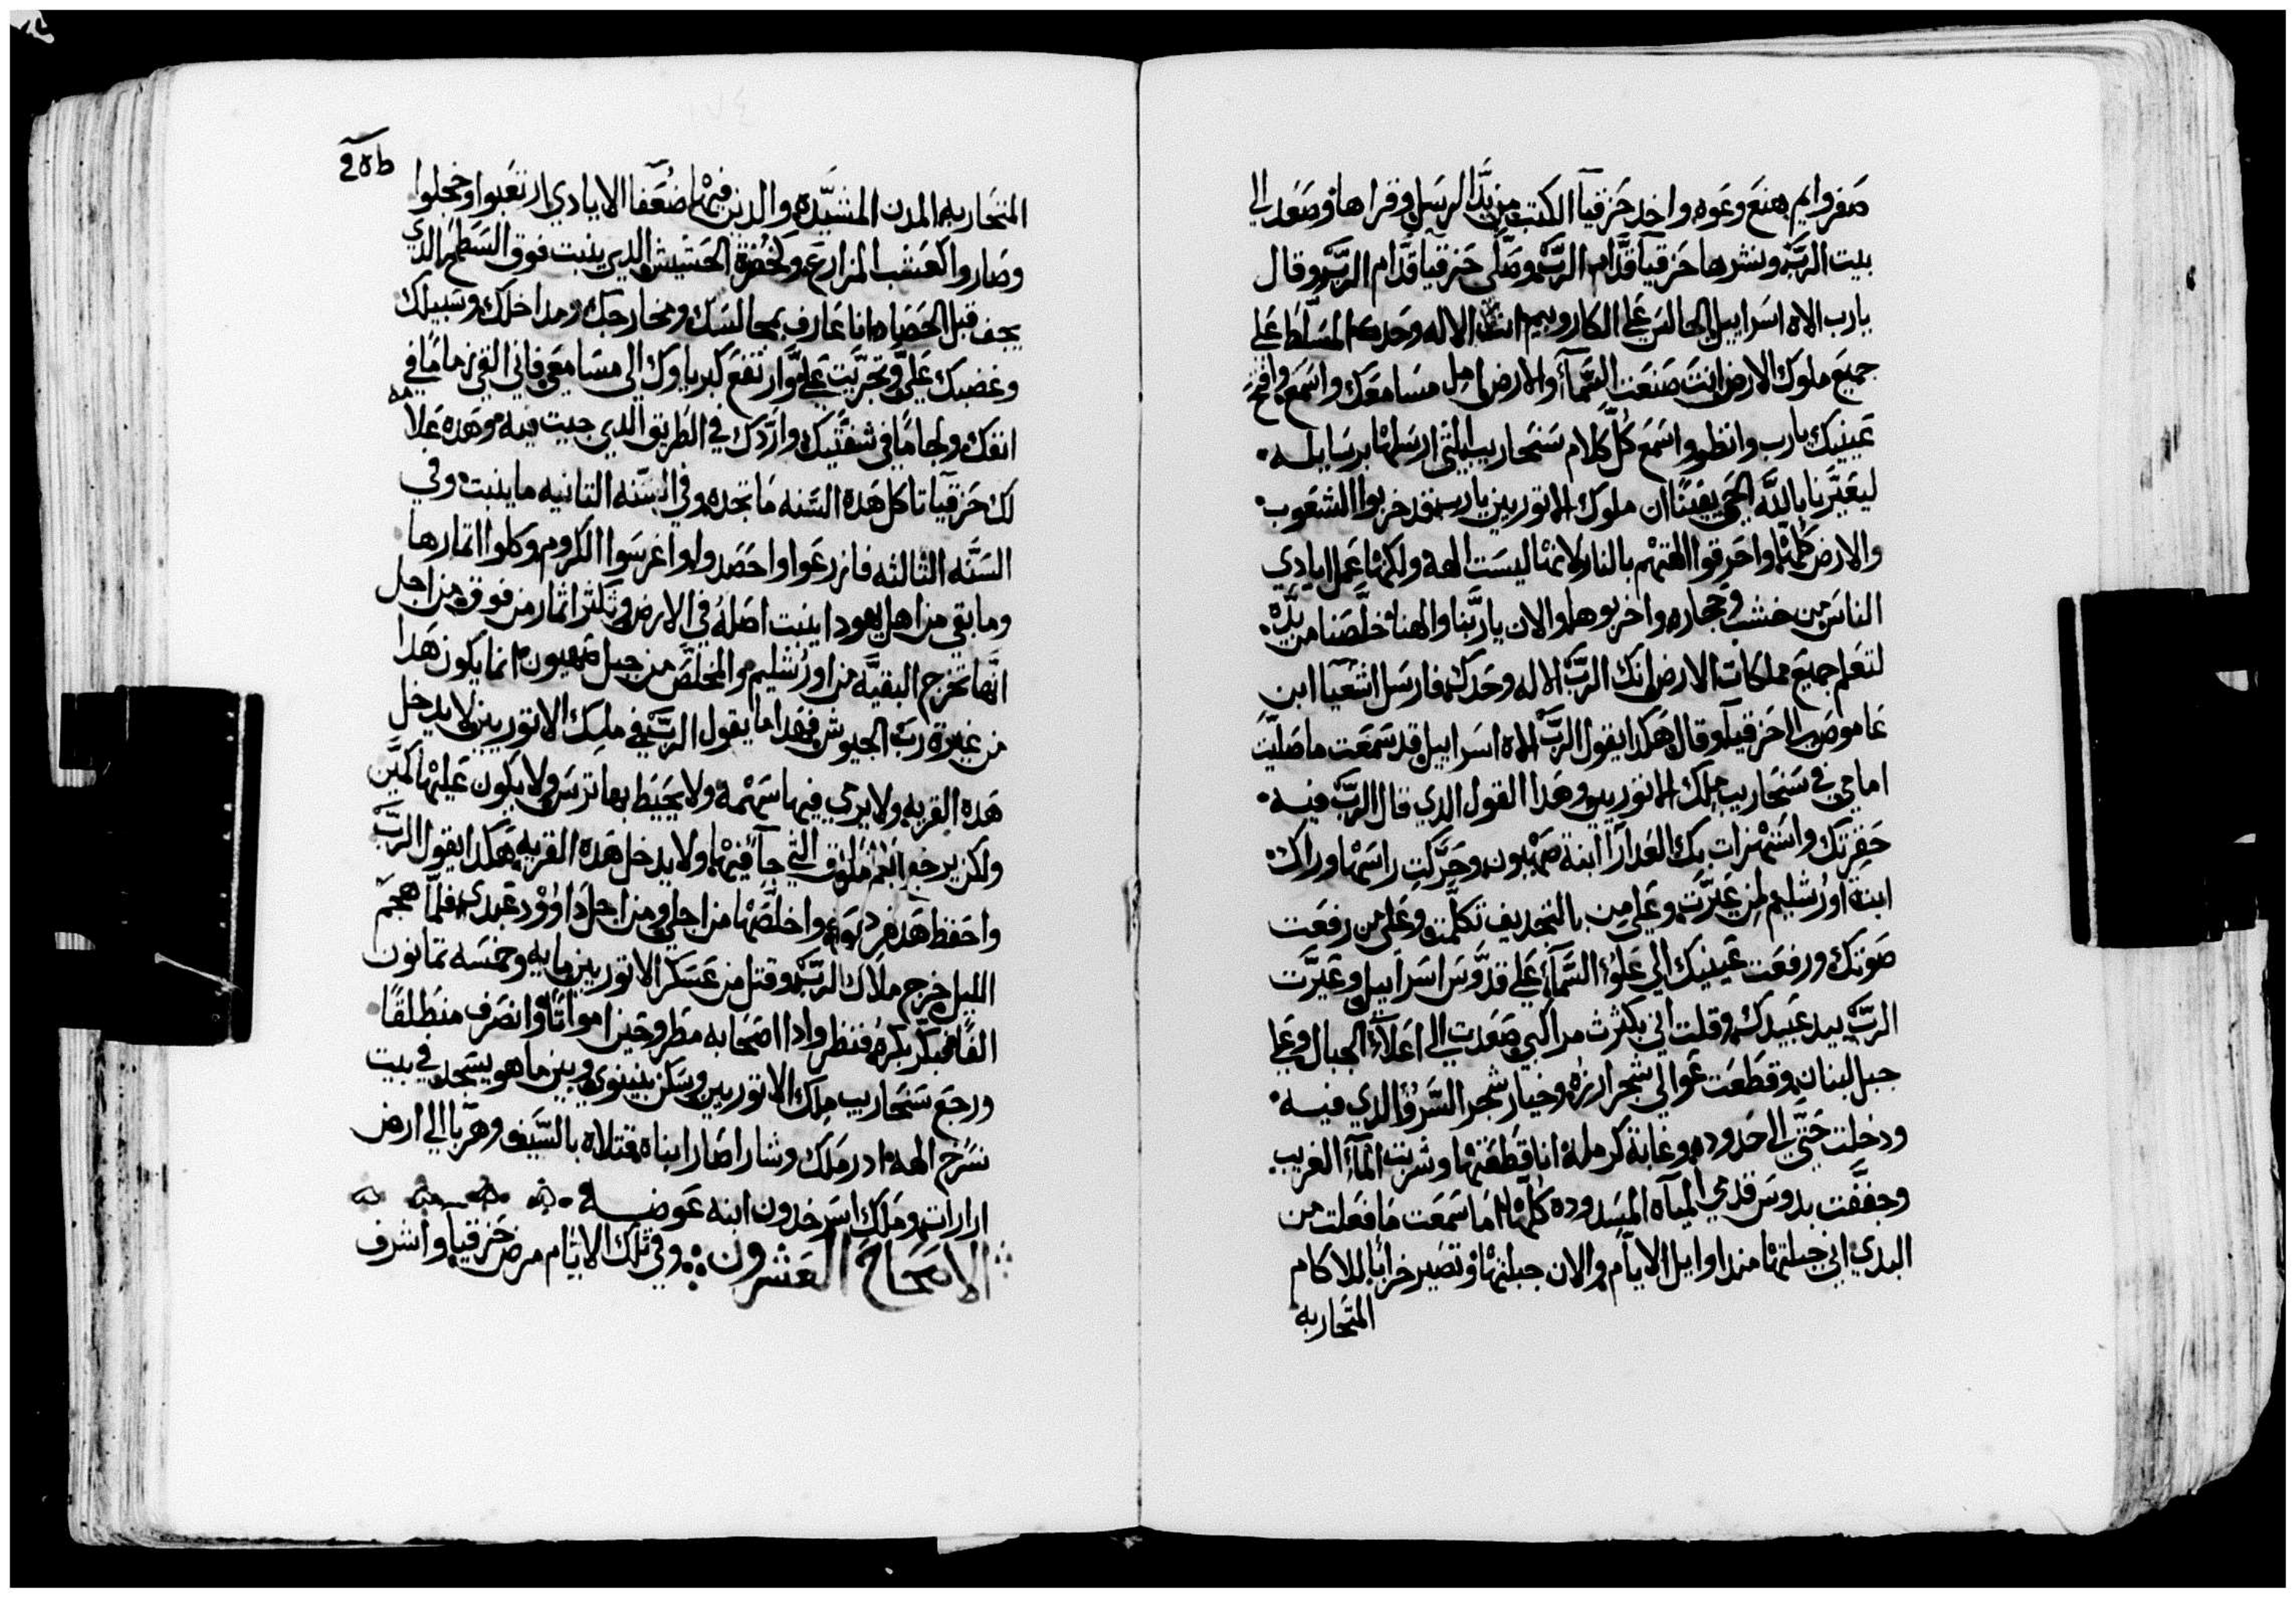 صفروايم هنع وعوه واخد حزقيا الكتب من يد الرسل وقراها وصعد الي
بيت الرب ونشرها حزقيا قدام الرب وصلي حزقيا قدام الرب وقال
يارب الاه اسراييل الجالس علي الكاروبيم انت الاله وحدك المسلط علي
جميع ملوك الارض انت صنعت السمآ والارض امل مسامعك واسمع وافتح
عينيك يارب وانظر واسمع كل كلام سنحاريب التي ارسلها برسايله
ليعيرنا بالله الحي يقينًا ان ملوك الاتوريين يارب قد خربوا الشعوب
والارض كلها واحرقوا الهتهم بالنار لانها ليست الهه ولكنها عمل ايادي
الناس من خشب وحجاره واخربوها والان يا ربنا والهنا خلصنا من يده
لتعلم جميع مملكات الارض انك الرب الاله وحدك فارسل اشعيا ابن
عاموص الي حزقيا وقال هكدا يقول الرب الاه اسراييل قد سمعت ما صليت
امامي في سنحاريب ملك الاتوريين وهدا القول الدي قال الرب فيه
حقرتك واستهزات بك العدارآ ابنة صهيون وحركت راسها وراك
ابنة اورشليم لمن عيرت وعلي من بالتجديف تكلمت وعلي من رفعت
صوتك ورفعت عينيك الي علو السمآ علي قدوس اسراييل وعيرت
الرب بيد عبيدك وقلت اني بكثرت مراكبي صعدت الي اعلآ الجبال وعلي
جبل لبنان وقطعت عوالي شجر ارزه وخيار شجر السرو الدي فيه
ودخلت حتي الي حدوده وغابة كرمله انا قطعتها وشربت المآ الغريب
وجففت بدوس قدمي المياه المسدوده كلها اما سمعت ما فعلت من
البدي اني جبلتها مند اوايل الايام والان جبلتها وتصير خرابا للاكام
المتحاربه
٢٥٥
المتحاربه المدن المشيده والدين فيها ضعفا الايادي ارتعبوا وخجلوا
وصاروا كعشب المزارع وكخضرة الحشيش الدي ينبت فوق السطح الدي
يجف قبل الحصاد انا عارف بمجالسك ومخارجك ومداخلك وسبيلك
وغضبك علي وتجريت علي وارتفع كبرياوك الي مسامعي فاني القي زمامًا في
انفك ولجامًا في شفتيك واردك في الطريق الدي جيت فيه وهده علامه
لك حزقيا تاكل هده السنه ما تجده وفي السنه التانيه ما ينبت وفي
السنه الثالثه فازرعوا واحصدوا واغرسوا الكروم وكلوا اتمارها
وما بقي من اهل يهودا ينبت اصله في الارض وتكثر اثمار من فوق من اجل
انها تخرج البقيه من اورشليم والمخلص من جبل صهيون انما يكون هدا
من غيرة رب الجيوش فهدا ما يقول الرب في ملك الاتوريين لا يدخل
هده القريه ولا يرمي فيها سهمه ولا يحيط بها ترس ولا يكون عليها كمين
ولكن يرجع التي جآ فيها ولا يدخل هده القريه هكدا يقول الرب
واحفظ واخلصها من اجلي ومن اجل داوود عبدي فلما هجم
الليل خرج ملاك الرب وقتل من عسكر الاتوريين مايه وخمسه تمانون
الفًا فبكر بكره فنظر وادا اصحابه مطروحين امواتًا وانصرف منطلقًا
ورجع سنحاريب ملك الاتوريين وسكن بنينوي وبين ما هو يسجد في بيت
نسرح الهه ادرملك وشاراصار ابناه قتلاه بالسيف وهربا الي ارض
ارارات وملك اسرحدون ابنه عوضه
الاصحاح العشرون وفي تلك الايام مرض حزقيا واشرف